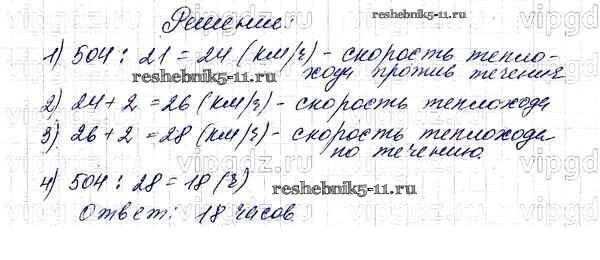 Решение:
reshebnik5-11.ru
1) 504 : 21 = 24 (км/ч) - скорость тепло-
хода против течения
reshebnik5-11.ru
2) 24 + 2 = 26 (км/ч) - скорость теплохода
3) 26 + 2 = 28 (км/ч) - скорость теплохода
по течению.
4) 504 : 28 = 18 (ч)
reshebnik5-11.ru
Ответ: 18 часов